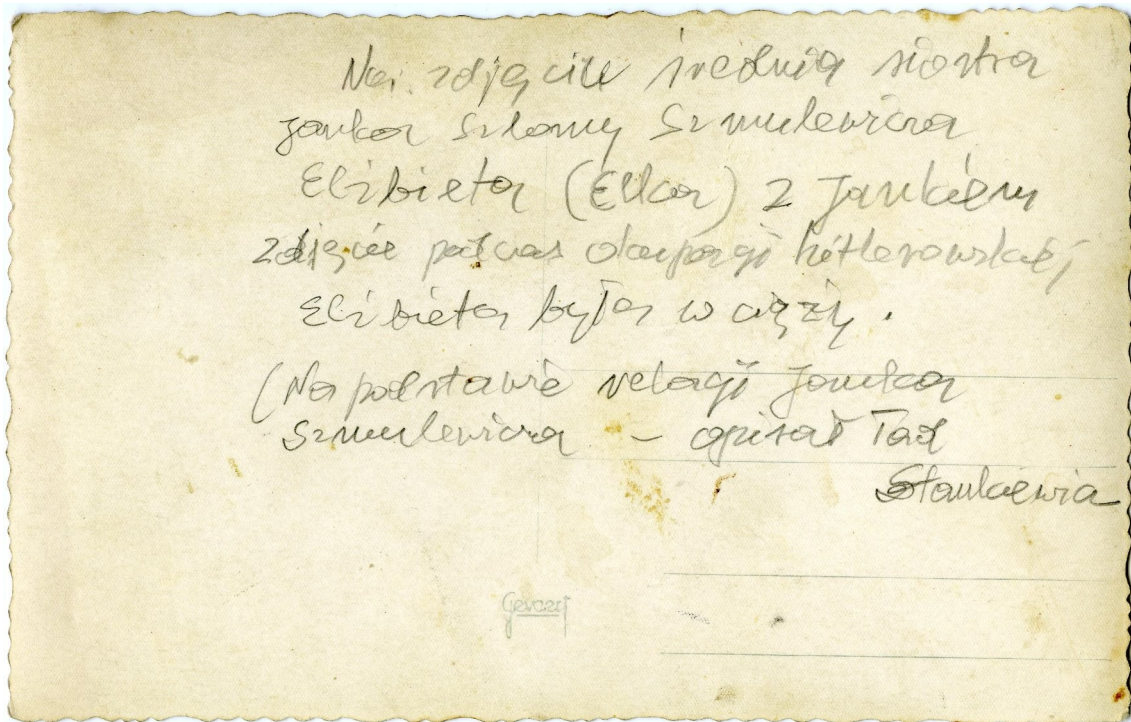 Na zdjęciu średnia siostra
Janka Szlomy Szmulewicza
Elżbieta (Elka) z Jankiem
zdjęcie podczas okupacji hitlerowskiej
Elżbieta była w ciąży.
(Na podstawie relacji Janka
Szmulewicza – opisał Tad
Stankiewicz
Gevaert